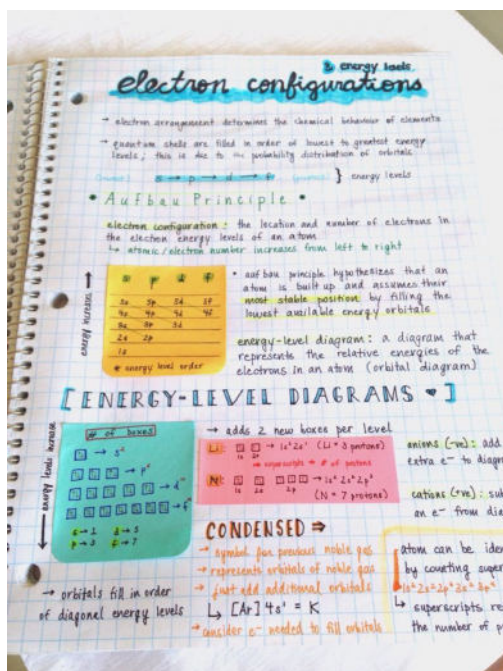 & energy levels
electron configurations
→ electron arrangement determines the chemical behaviour of elements
→ quantum shells are filled in order of lowest to greatest energy
levels; this is due to the probability distribution of orbitals
s → p → d → f } energy levels
• Aufbau Principle •
electron configuration: the location and number of electrons in
the electron energy levels of an atom
↳ atomic/electron number increases from left to right
s p d f
5s 5p 5d 5f
4s 4p 4d 4f
3s 3p 3d
2s 2p
1s
* energy level order
• aufbau principle hypothesizes that an
atom is built up and assumes their
most stable position by filling the
lowest available energy orbitals
energy-level diagram: a diagram that
represents the relative energies of the
electrons in an atom (orbital diagram)
[ENERGY-LEVEL DIAGRAMS ♥]
energy levels increase
# of boxes
→ s²
→ p⁶
s → 1 d → 5
p → 3 f → 7
→ orbitals fill in order
of diagonal energy levels
→ adds 2 new boxes per level
Li: → 1s² 2s¹ (Li = 3 protons)
1s 2s
→ superscripts → # of protons
N: → 1s² 2s² 2p³
1s 2s 2p (N = 7 protons)
anions (-ve): add
extra e⁻ to diagr
cations (+ve): su
an e⁻ from dia
CONDENSED ⇒
→ symbol for previous noble gas
→ represents orbitals of noble gas
→ just add additional orbitals
↳ [Ar] 4s¹ = K
→ consider e⁻ needed to fill orbitals
atom can be iden
by counting super
1s² 2s² 2p⁶ 3s² 3p⁶
↳ superscripts re
the number of p